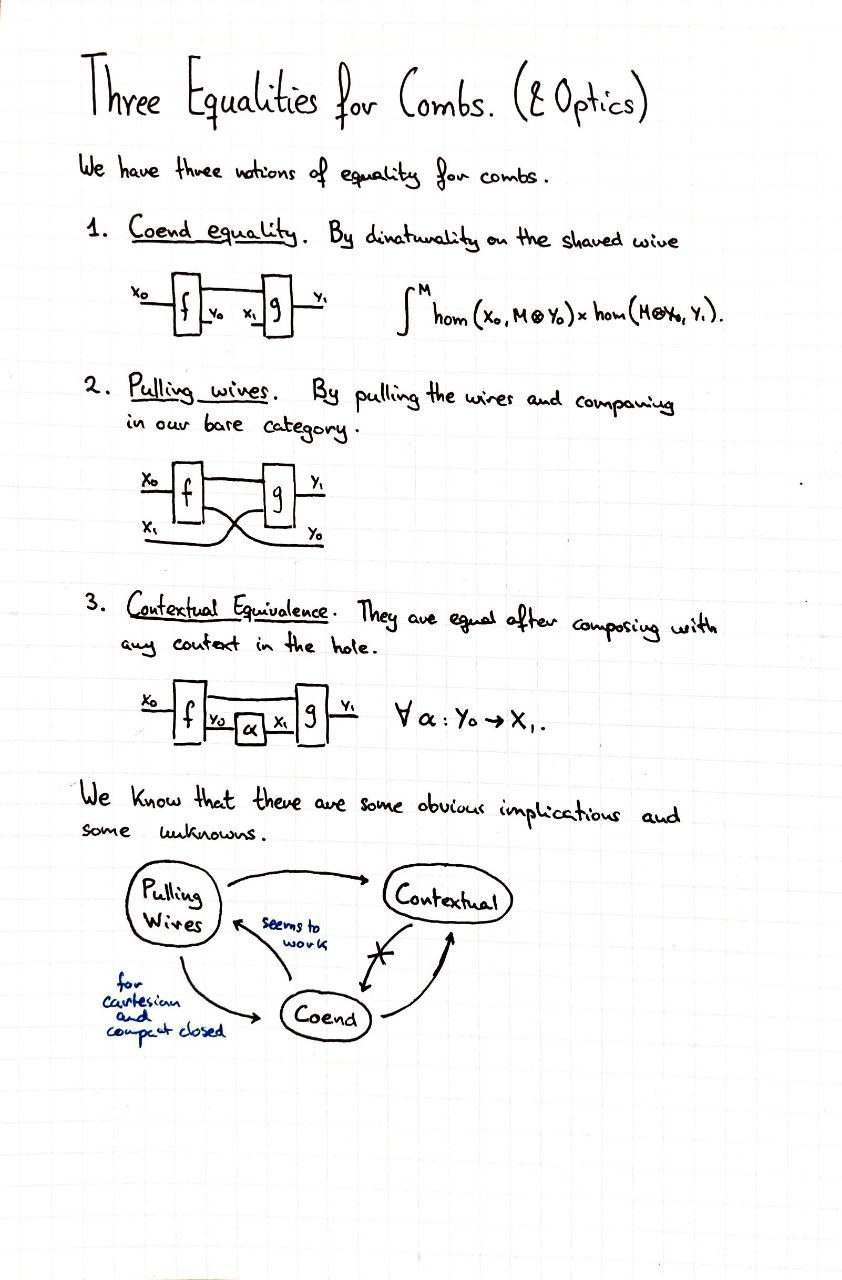 Three Equalities for Combs. (& Optics)
We have three notions of equality for combs.
1. Coend equality. By dinaturality on the shared wire
X₀ f Y₀ X₁ g Y₁ ∫ᴹ hom (X₀, M ⊗ Y₀) × hom (M⊗X₁, Y₁).
2. Pulling wires. By pulling the wires and comparing
in our base category.
X₀ f g Y₁
X₁ Y₀
3. Contextual Equivalence. They are equal after composing with
any context in the hole.
X₀ f Y₀ α X₁ g Y₁ ∀ α : Y₀ → X₁.
We know that there are some obvious implications and
some unknowns.
Pulling
Wires
Contextual
seems to
work
for
cartesian
and
compact closed
Coend